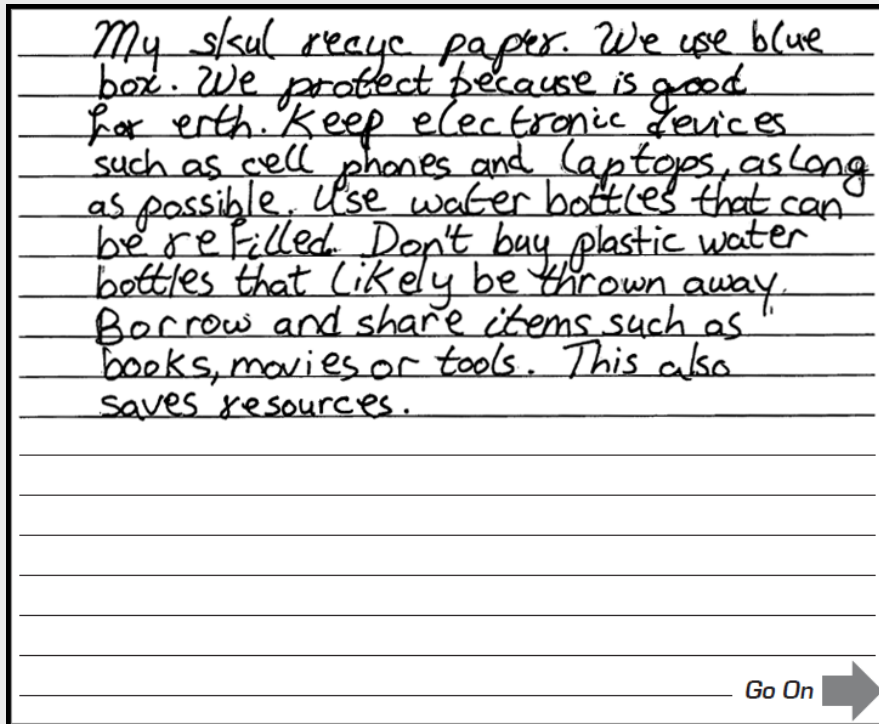 My skul recyc paper. We use blue
box. We protect because is good
for erth. Keep electronic devices
such as cell phones and laptops, as long
as possible. Use water bottles that can
be refilled. Don't buy plastic water
bottles that likely be thrown away.
Borrow and share items such as
books, movies or tools. This also
saves resources.
Go On